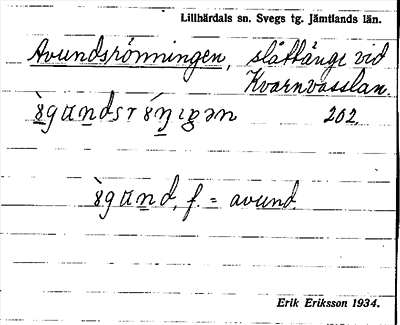 Lillhärdals sn. Svegs tg. Jämtlands län.
Avundsrönningen, slåttänge vid
Kvarnvasslan.
202.
f. = avund.
Erik Eriksson 1934.